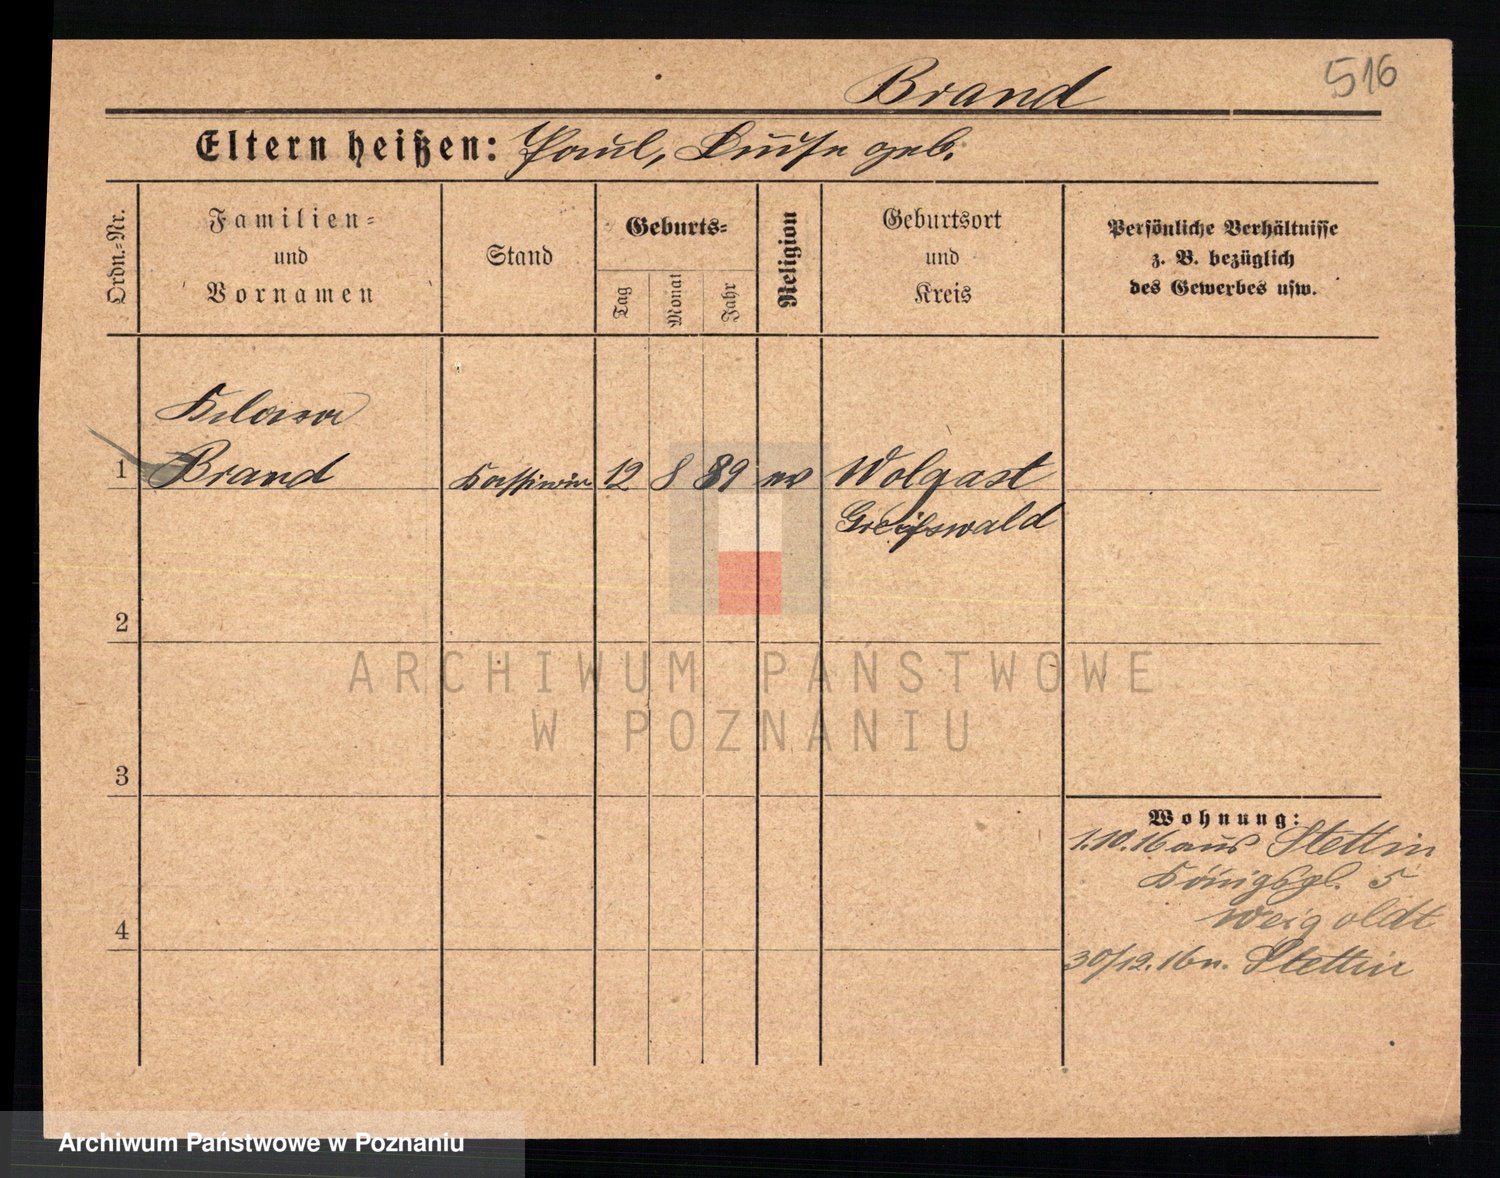 516
Brand
Eltern heißen: Paul, Luise geb.
Ordn.=Nr.
Familien=
und
Vornamen
Stand
Geburts=
Tag
Monat
Jahr
Religion
Geburtsort
und
Kreis
Persönliche Verhältnisse
z. B. bezüglich
des Gewerbes usw.
Klara
1 Brand Kassirerin 12 8 89 ev Wolgast
Greifswald
2
3
4
Wohnung:
1.10.16 aus Stettin
Königspl. 5
Weigoldt
30/12.16 n. Stettin
ARCHIWUM PAŃSTWOWE
W POZNANIU
Archiwum Państwowe w Poznaniu